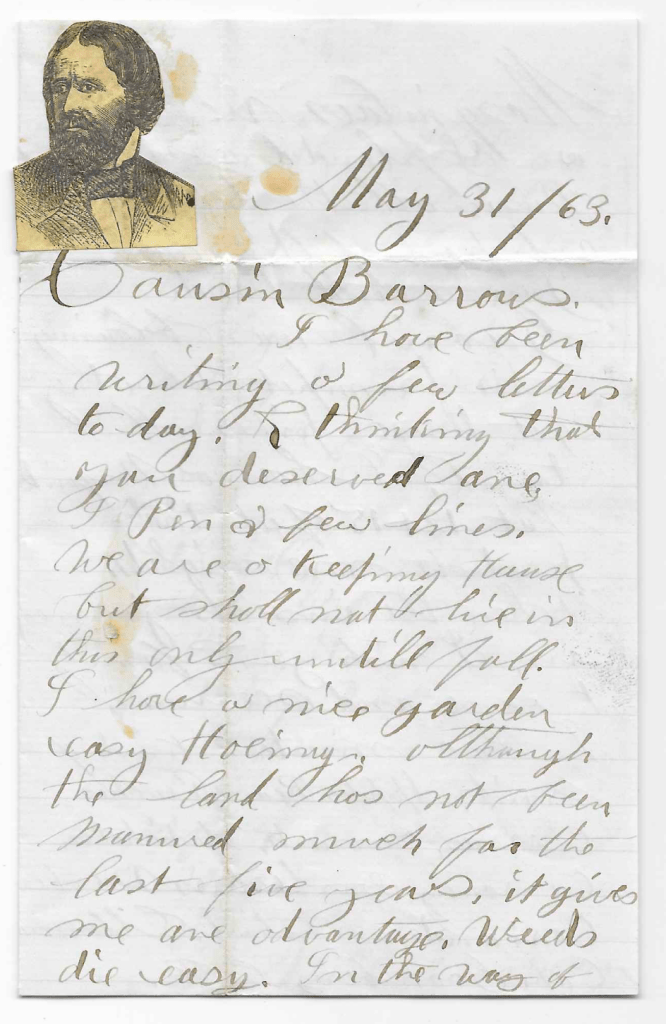 May 31/63.
Cousin Barrows.
I have been
writing a few letters
to day. & thinking that
you deserved one,
I Pen a few lines.
We are a Keeping House
but shall not live in
this only untill fall.
I have a nice garden
easy Hoeing. although
the land has not been
manured much for the
last five years, it gives
me one advantage. Weeds
die easy. In the way of